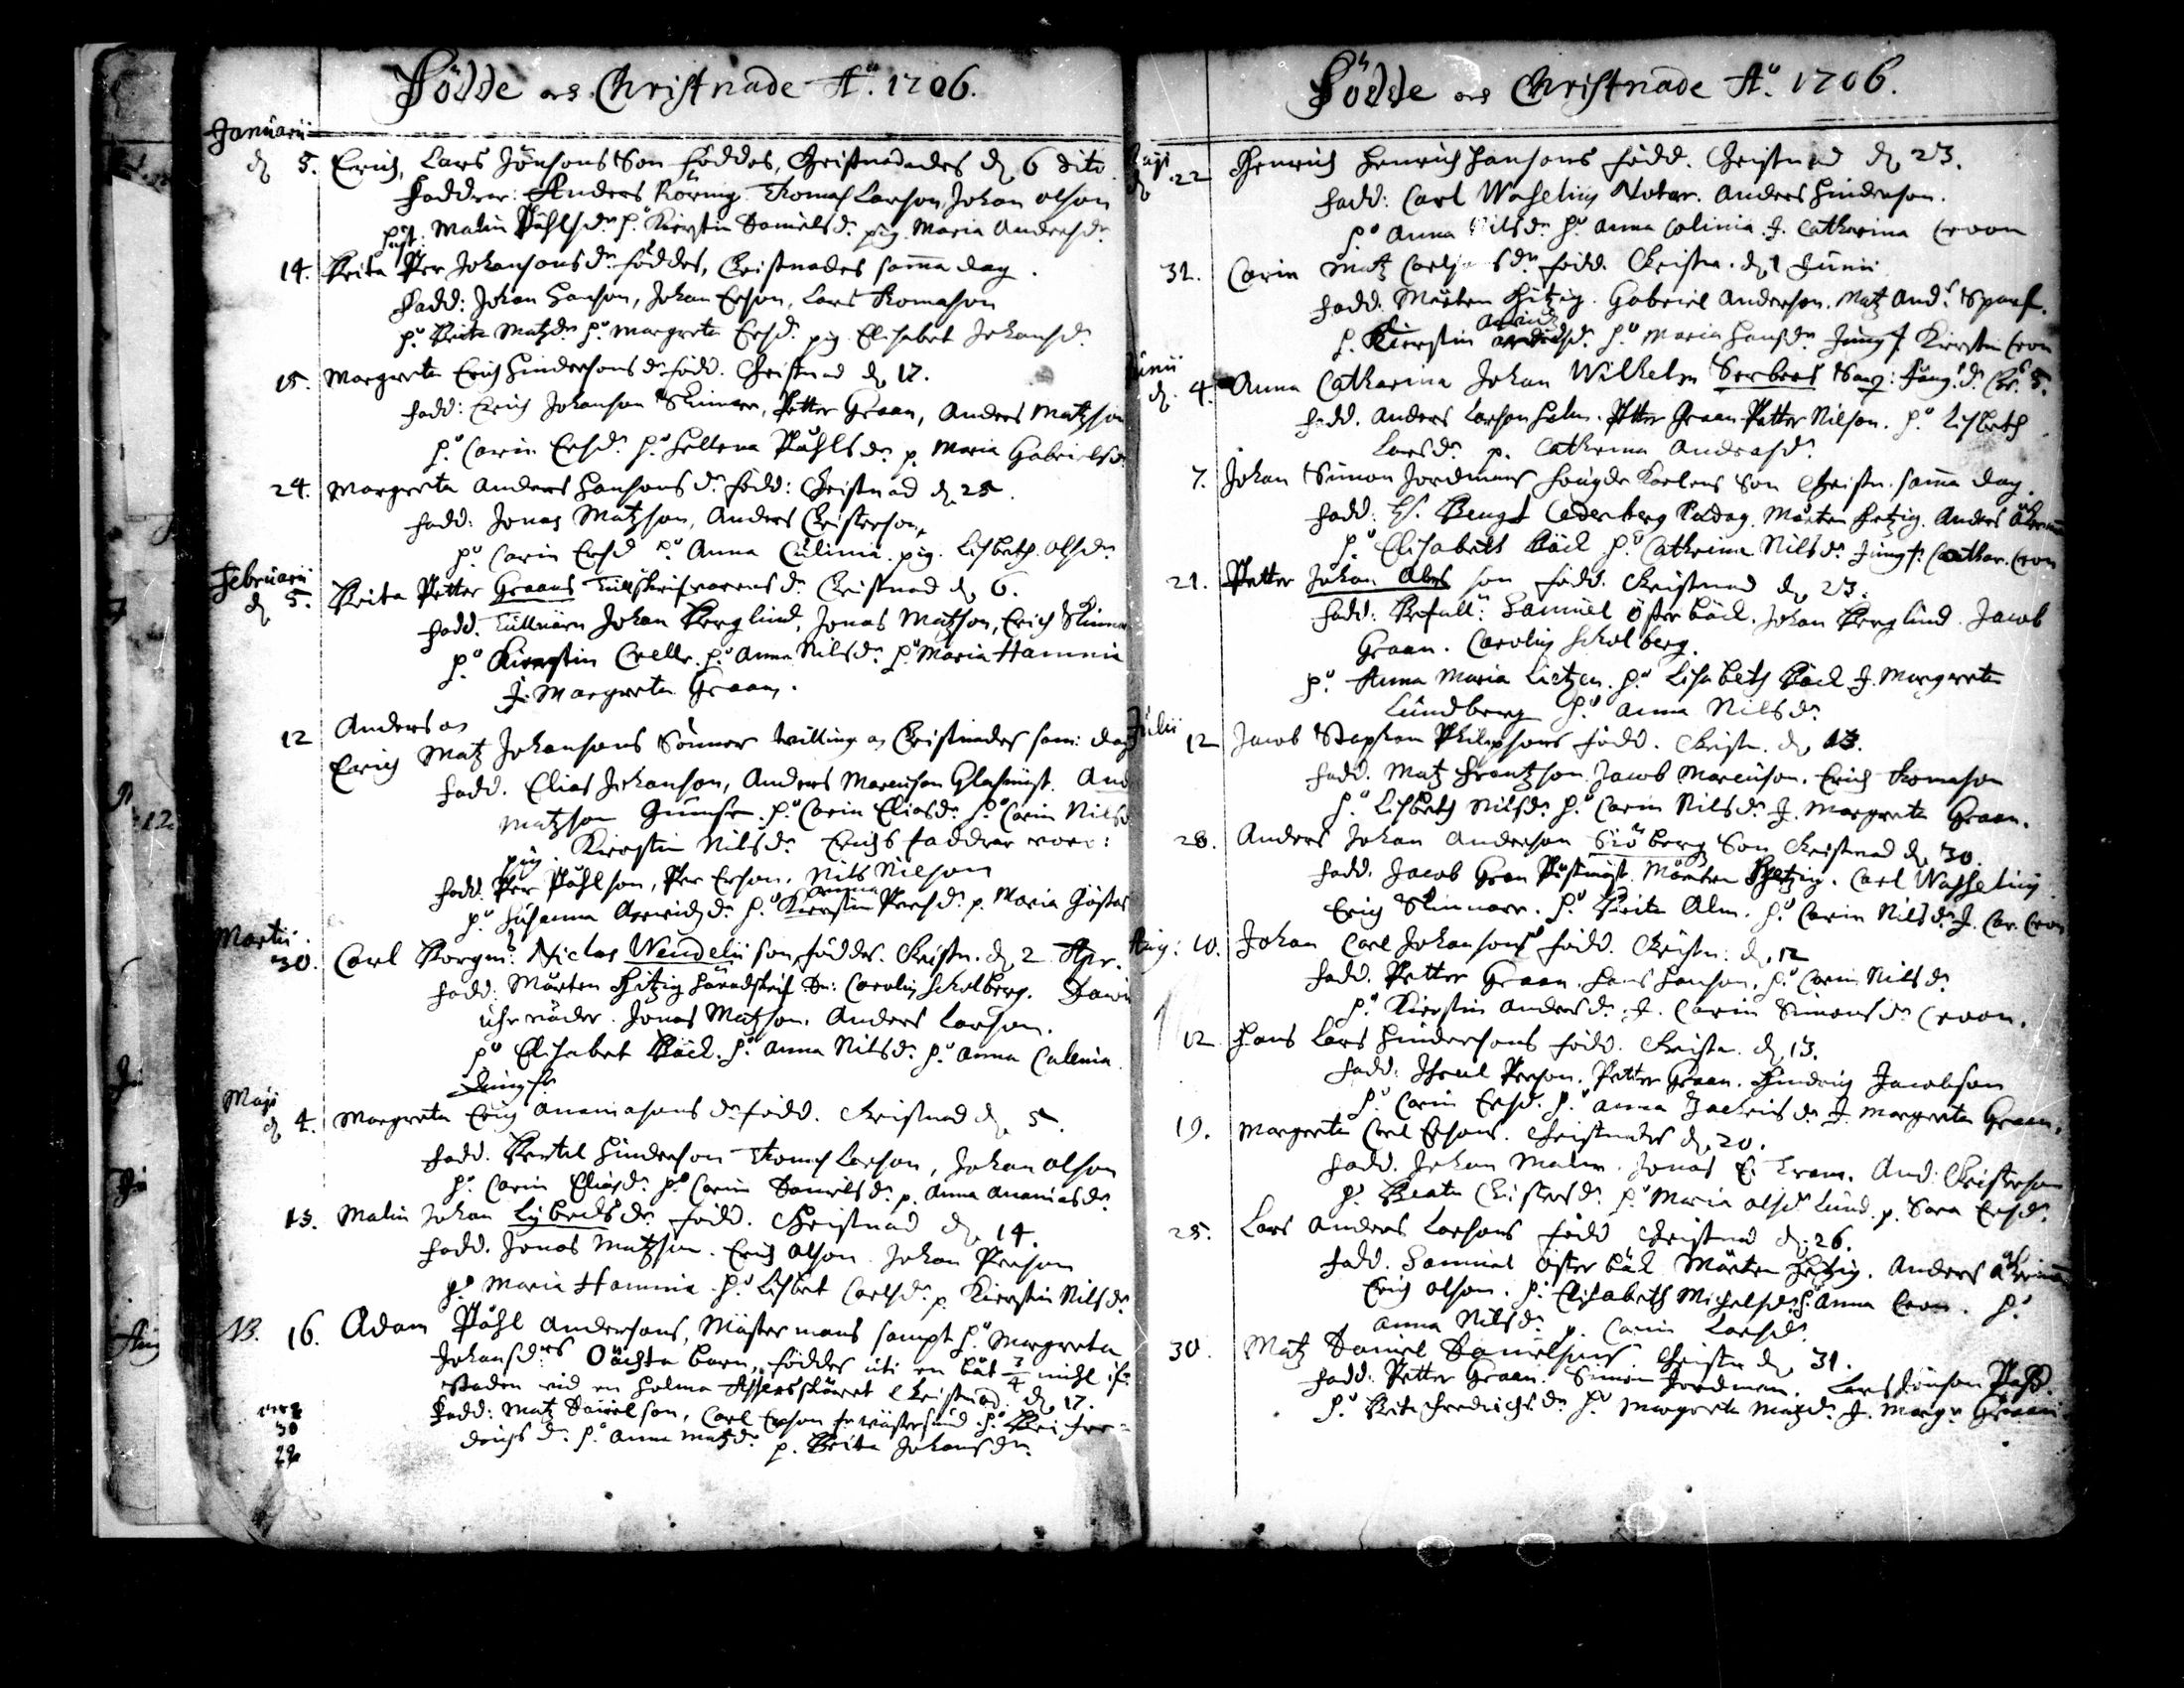 Födde och Christnade Aº. 1706.
Januarii
d. 5. Erich, Lars Jönsons Son föddes, Christnades d. 6 dito
Faddrar: Anders Röring Thomas Larson, Johan Olson
Hust: Malin Påhlsdr. h. Kierstin Danielsdr. pig. Maria Andersdr.
14. Brita Per Johansons dr. föddes, Christnades samma dag.
Fadd: Johan Hanson, Johan Erson, Lars Thomason
hº Brita Matzdr. hº Margreta Ersdr. pig. Elisabet Johansdr.
15. Margreta Erich Hindersons dr. född. Christnad d. 17.
Fadd: Erich Johanson Skinnare, Petter Graan, Anders Matzson
hº Carin Ersdr. hº Hellena Påhlsdr. p. Maria Gabrielsdr.
24. Margreta Anders Hansons dr. född: Christnad d. 25.
Fadd: Jonas Matzson, Anders Christerson,
hº Carin Ersd hº Anna Culinia. pig. Lisbeth Olsdr.
Februarii
d. 5. Brita Petter Graans Tullskrifvarens dr. Christnad d. 6.
Fadd. Tullnären Johan Berglund, Jonas Matzson, Erich Skinnar
hº Kierstin Crelle. hº Anna Nilsdr. hº Maria Hamnia
J. Margreta Graan.
12 Anders och
Erich Matz Johansons Sönner twillingar Christnades sam: dag
Fadd. Elias Johanson, Anders Marcuson Glasmäst. And
Matzson hº Carin Eliasdr. hº Carin Nilsd
pig. Kierstin Nilsdr. Erichs faddrar wore:
Fadd. Per Påhlson, Per Erson, Nils Nilson
hº Susanna Arwidzdr. hº Anna Persdr. p. Maria Göstas
Martii
30. Carl Borgm: Niclas Wendelii son, föddes. Christn. d. 2 Apr.
Fadd: Mårten Hitzig Häradskrif. Dn: Carolus Scholberg.
Jonas Matzson. Anders Larson.
hº Elisabet Bäck. hº Anna Nilsdr. hº Anna Culenia
Jungfr
Maji
d. 4. Margreta Erich Ananiasons dr. född. Christnad d. 5.
Fadd. Bertil Hinderson Thomas Larson, Johan Olson
hº Carin Eliasdr. hº Carin Danielsdr. p. Anna Ananiasdr.
13. Malin Johan Lybecks dr. född. Christnad d. 14.
Fadd. Jonas Matzson. Erich Olson. Johan Person
hº Maria Hamnia. hº Lisbet Carlsdr. p. Kierstin Nilsdr.
NB. 16. Adam Påhl Andersons, Mästermans sampt hº Margreta
Johansdrs Oächta barn, föddes uti en båt 3/4 mihl ifr.
staden wid en holma Christnad d. 17.
Fadd: Matz Danielson, Carl Erson hº Brita Fre=
drichsdr. hº Anna Matzdr. p. Brita Johansdr.
30
Födde och Christnade Aº. 1706.
Maji
d. 22 Henrich Henrich Hansons född. Christnad d. 23.
Fadd: Carl Wasselius Notar. Anders Hinderson.
hº Anna Nilsdr. hº Anna Colinia. J. Catharina Croon
31. Carin Matz dr. född. Christn. d. 1 Junii
Fadd: Mårten Hitzig. Gabriel Anderson. Matz And: Sparf.
h. Kierstin Arvidzdr. hº Maria Hansdr. Jungf. Kierstin Cron
Junii
d. 4. Anna Catharina Johan Wilhelm Serbers dr. Chr. 5.
Fadd. Anders Larson Holm. Petter Graan Petter Nilson. hº Lisbeth
Larsdr. p. Catharina Andersdr.
7. Johan Simon Jordmans son Christn. samma dag.
Fadd: Hr. Bengt Cederberg Pædag. Mårten Hitzig. Anders
hº Elisabeth Bäck hº Catharina Nilsdr. Jungf. Cathar. Cron
21. Petter Johan Abs son född. Christnad d. 23.
Fadd: Befall: Samuel Österbäck. Johan Berglund. Jacob
Graan. Carolus Scholberg.
hº Anna Maria Lietzen. hº Lisabeth Bäck J. Margreta
Lundberg hº Anna Nilsdr.
Julii
12 Jacob Staphan Philipsons född. Christn. d. 13.
Fadd. Matz Frantzson. Jacob Marcuson. Erich Thomason
hº Lisbeth Nilsdr. hº Carin Nilsdr. J. Margreta Graan.
28. Anders Johan Anderson Siöberg Son Christnad d. 30.
Fadd. Jacob Gran Postmäst. Mårten Hitzig. Carl Wasselius
Erich Skinnare. hº Brita Alm. hº Carin Nilsdr. J. Car. Cron
Aug: 10. Johan Carl Johansons född. Christn: d. 12
Fadd. Petter Graan. Hans Hanson. hº Carin Nilsdr.
hº Kierstin Andersdr. J. Carin Simonsdr Croon.
12 Hans Lars Hindersons född. Christn. d. 13.
Fadd: Person. Petter Graan. Hindrich Jacobson
hº Carin Ersdr. hº Anna Zachrisdr. J. Margreta Graan.
19. Margreta Carl Ersons. Christnades d. 20.
Fadd. Johan Malm. Jonas And: Christerson
hº Beata Christersdr. hº Maria Olsdr Lund. p. Sara Ersdr.
25. Lars Anders Larsons född Christnad d. 26.
Fadd. Samuel Österbäck Mårten Hitzig. Anders
Erich Olson. h. Elisabeth Michelsdr. h. Anna Cron. hº
Anna Nilsdr. p. Carin Larsdr.
30. Matz Daniel Danielsons. Christn d. 31.
Fadd: Petter Graan. Simon Jordman. Lars Jönson
hº Brita Fredrichsdr. hº Margreta Matzdr. J. Margr. Graan.